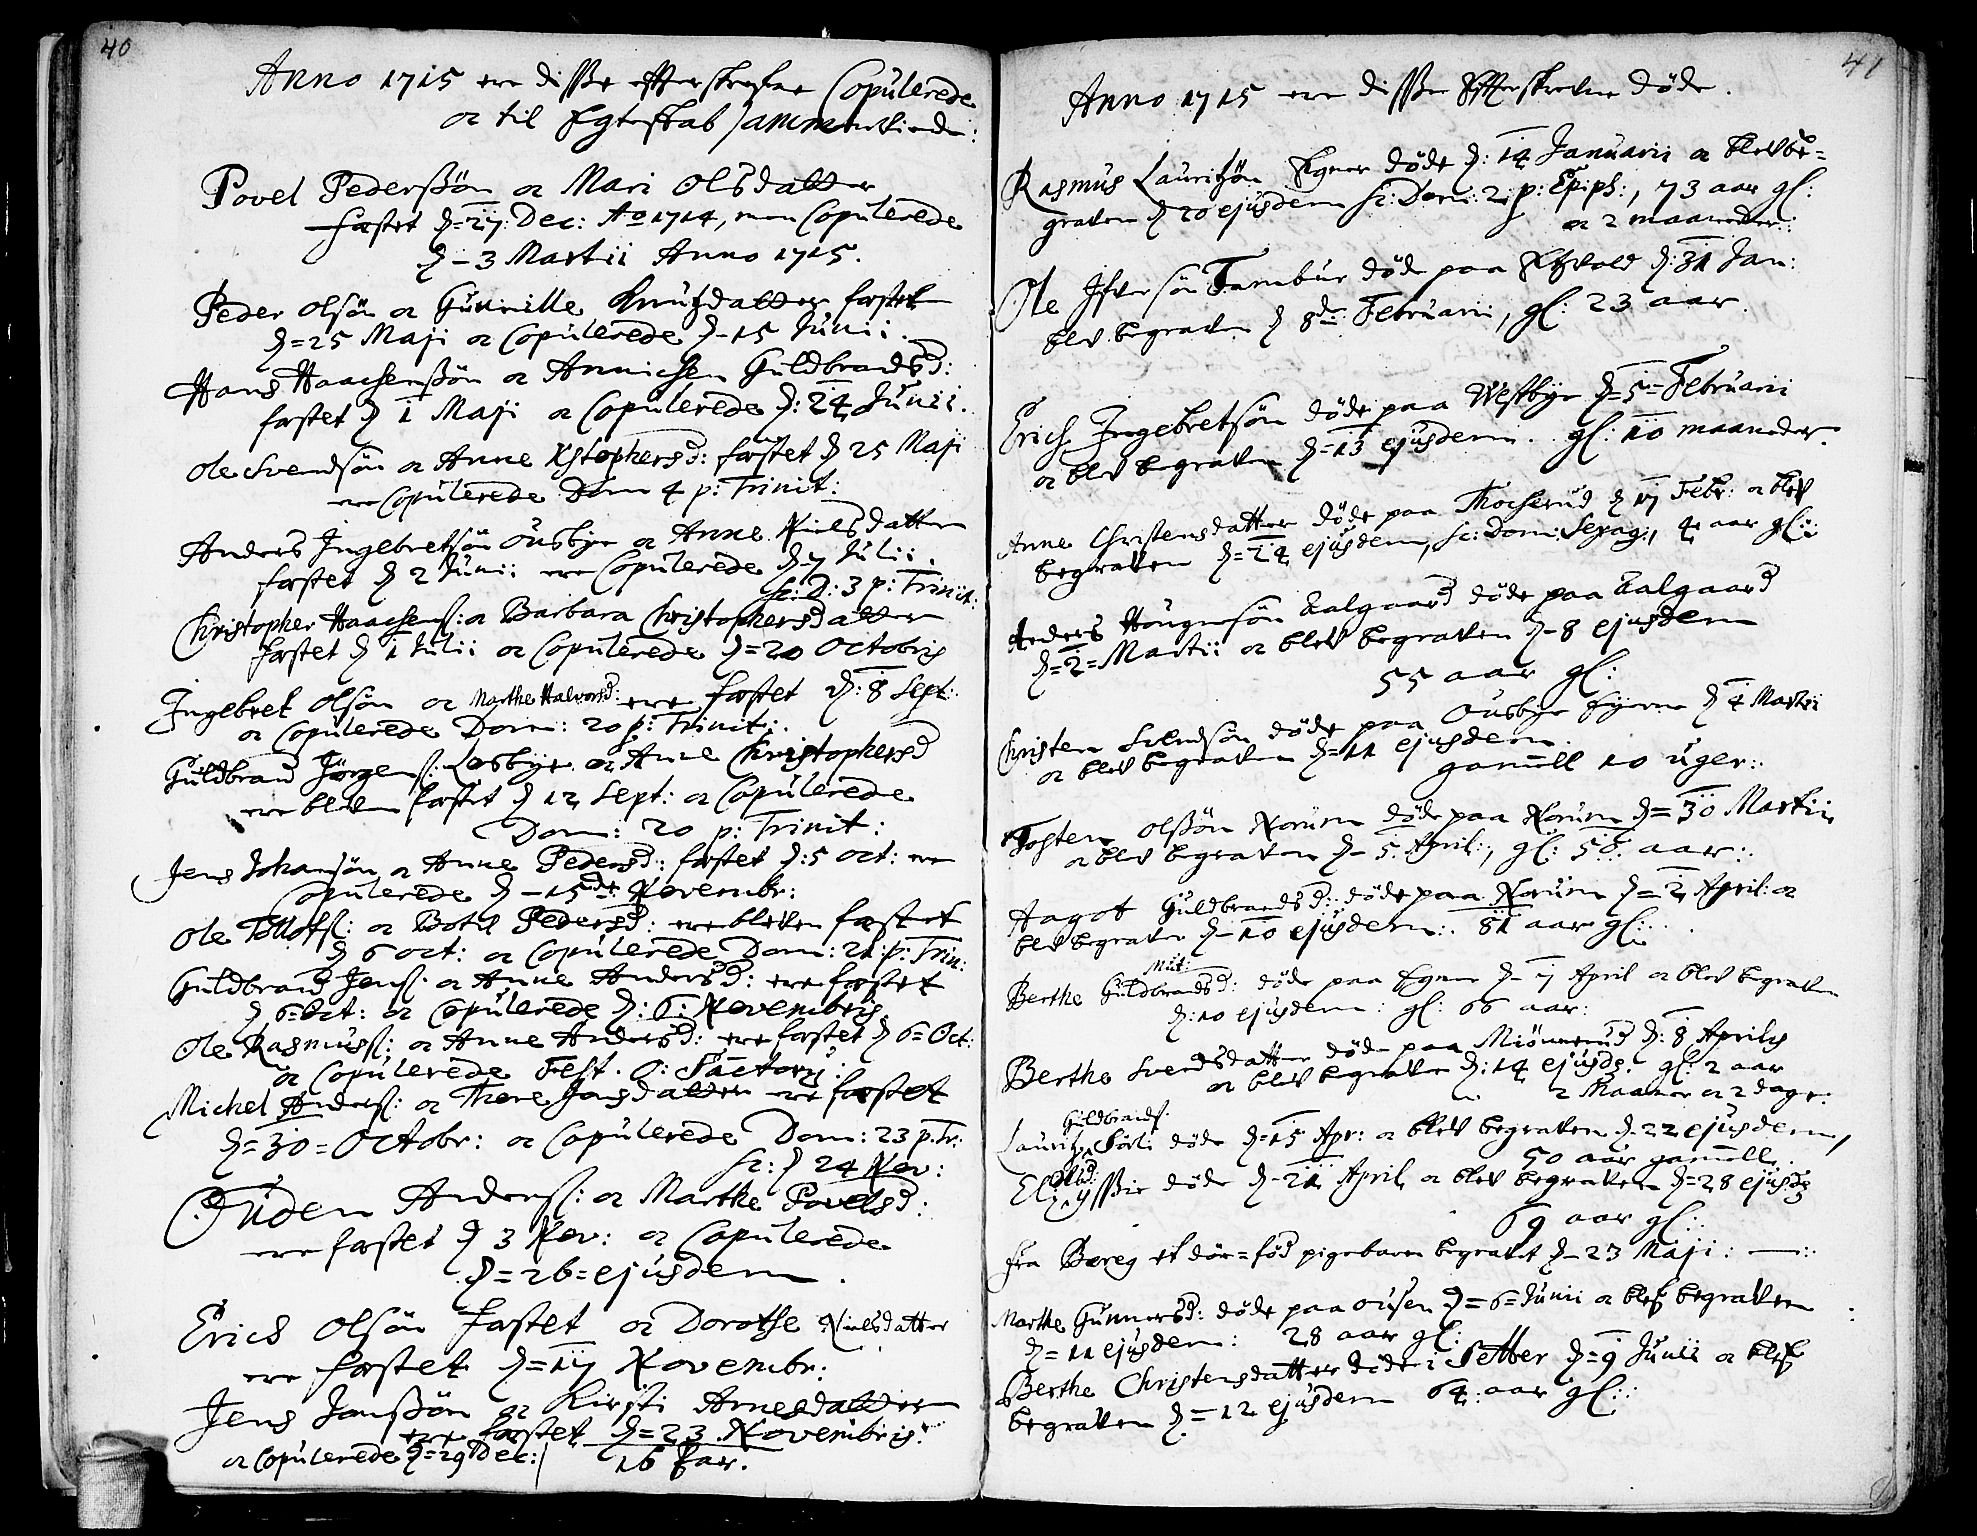 40
Anno 1715 ere disse efterskrefne Copulerede
oc til Egteskab sammenviede:
Povel Pederssøn oc Mari Olsdatter
fæstet d=27. Dec: Ao 1714, men Copulerede
d- 3 Martii Anno 1715.
Peder Olsøn oc Gunnille Knutzdatter fæstet
d=25 Maji oc Copulerede d-15 Junii.
Hans Haachenssøn oc Annichen Guldbrandsd:
fæstet d 1 Maji oc Copulerede d: 24 Junii.
Ole Svendsøn oc Anne Xstophersd: fæstet d 25 Maji
ere Copulerede Dom 4 p: Trinit:
Anders Ingebretsøn Ousbye oc Anne Nielsdatter
fæstet d 2 Junii ere Copulerede d-7 Julii.
sc: D: 3 p: Trinit:
Christopher Haachens: oc Barbara Christophersdatter
fæstet d 1 Julii oc Copulerede d=20 Octobris
Ingebret Olsøn oc Marthe Halvorsd: ere fæstet d: 8 Sept:
oc Copulerede Dom: 20 p: Trinit:
Guldbrand Jørgens: Losbye oc Anne Christophersd
ere bleven fæstet d 12 Sept: oc Copulerede
Dom: 20 p: Trinit:
Jens Johansøn oc Anne Pedersd: fæstet d: 5 Oct: ere
Copulerede d - 15de Novembr:
Ole Tollofs: oc Botil Pedersd: ere bleven fæstet
d 6 Oct: oc Copulerede Dom: 21 p: Trin:
Guldbrand Jens: oc Anne Andersd: ere fæstet
d 6=Oct: oc Copulerede d: 6: Novembris
Ole Rasmus: oc Anne Andersd: ere fæstet d 6=Oct:
oc Copulerede Fest. O: Sanctorũ:
Michel Anders: oc Thore Jensdatter ere fæstet
d=30=Octobr: oc Copulerede Dom: 23 p. Tr:
sc: d 24 Nov:
Ouden Anders: oc Marthe Povelsd:
ere fæstet d 3 Nov: oc Copulerede
d=26=ejusdem.
Erich Olsøn fæstet oc Dorothe Nielsdatter
ere fæstet d=17 Novembr:
Jens Jonssøn oc Kirsti Arnesdatter
ere fæstet d=23 Novembris:
oc Copulerede d=29 Dec:
16 Par.
41
Anno 1715 ere disse Efterskrevne døde.
Rasmus Lauritzøn Egner døde d: 14 Januarii oc blev be=
graven d 20 ejusdem sc: Dom: 2 p: Epiph:, 73 aar gl:
oc 2 maaneder:
Ole Ifversøn Tambur døde paa d: 31 Jan:
blev begraven d 8de Februarii, gl: 23 aar.
Erich Ingebretsøn døde paa Westbye d=5=Februarii
oc blev begraven d=13 ejusdem. gl: 10 maaneder.
Anne Christensdatter døde paa Thocherud d 17 Febr: oc blev
begraven d=24 ejusdem, sc: Dom: Sexag:, 4 aar gl:
Anders Haugnesøn Dalgaard døde paa Dalgaard
d=2=Martii oc blev begraven d-8 ejusdem
55 aar gl:
Christen Svendsøn døde paa Ousbye d 4 Martii
oc blev begraven d=11 ejusdem.
gamell 10 uger:
Tosten Olssøn Norum døde paa Norum d=30 Martii
oc blev begraven d- 5 April:, gl: 58 aar:
Aagot Guldbrandsd: døde paa Norum d=2 April: oc
blev begraven d-10 ejusdem: 81 aar gl:
Mut:
Berthe Guldbrandsd: døde paa Egner d- 7 April oc blev begraven
d: 10 ejusdem: gl: 66 aar:
Berthe Svendsdatter døde paa Miønnerud d: 8 Aprilis
oc blev begraven d: 14 ejusd: gl: 2 aar
2 Maaner oc 2 dage:
Guldbrands:
Lauritz Sørli døde d=15 Apr: oc blev begraven d-22 ejusdem,
50 aar gamell.
Eli døde d-21 April oc blev begraven d=28 ejusd:
69 aar gl:
fra Bæreg et dør=fød pigebarn begravet d-23 Maji:
Marthe Gunnersd: døde paa Ousen d=6=Junii oc blef begraven
d=11 ejusdem: 28 aar gl:
Berthe Christensdatter døde i Setter d=9 Junii oc blef
begraven d=12 ejusdem 64: aar gl: